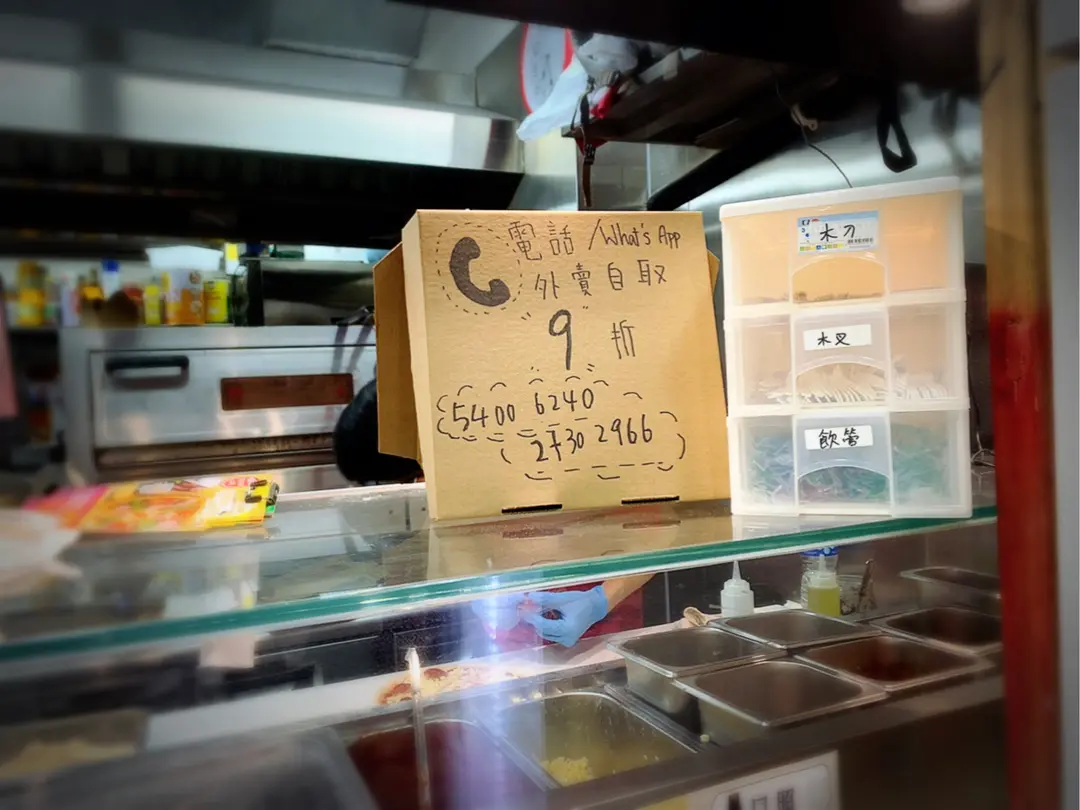 電話/What's App
外賣自取
9折
5400 6240
2730 2966
木刀
木叉
飲管